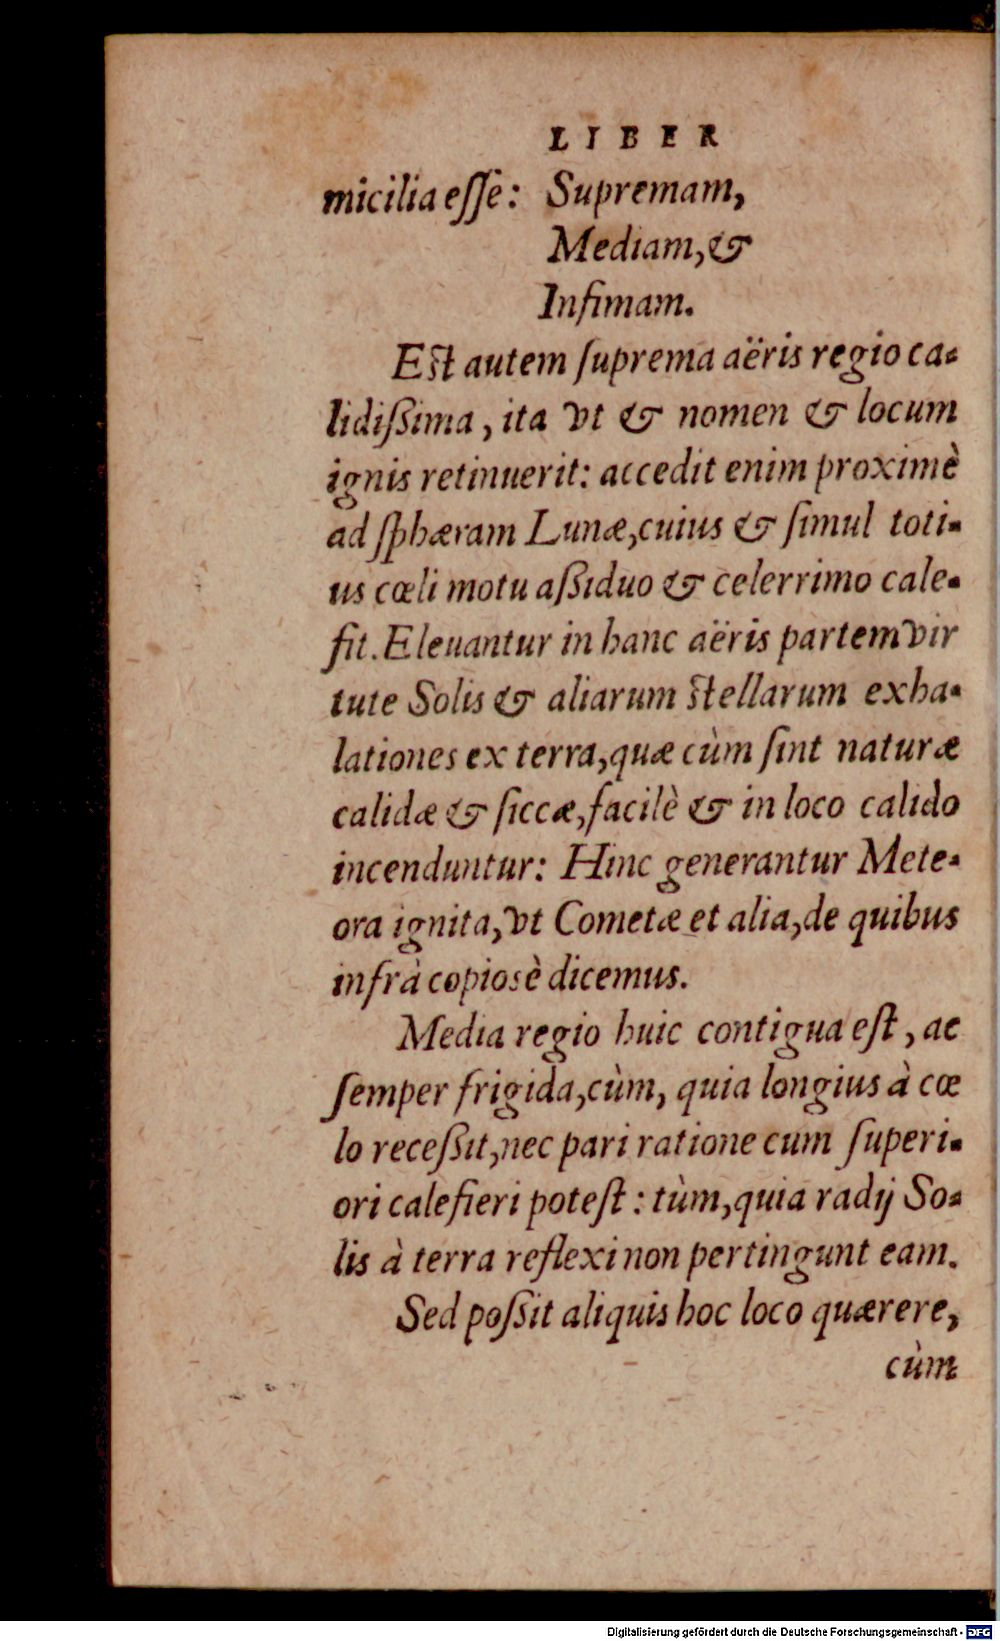 LIBER
micilia eſſe: Supremam,
Mediam, &
Infimam.
Eſt autem ſuprema aëris regio ca-
lidiſsima, ita vt & nomen & locum
ignis retinuerit: accedit enim proximè
ad ſphæram Lunæ, cuius & ſimul toti-
us cœli motu aſsiduo & celerrimo cale-
fit. Eleuantur in hanc aëris partem vir
tute Solis & aliarum ſtellarum exha-
lationes ex terra, quæ cùm ſint naturæ
calidæ & ſiccæ, facilè & in loco calido
incenduntur: Hinc generantur Mete-
ora ignita, vt Cometæ et alia, de quibus
infrà copiosè dicemus.
Media regio huic contigua eſt, ac
ſemper frigida, cùm, quia longius à cœ
lo receſsit, nec pari ratione cum ſuperi-
ori calefieri poteſt: tùm, quia radij So-
lis à terra reflexi non pertingunt eam.
Sed poſsit aliquis hoc loco quærere,
cùm
Digitalisierung gefördert durch die Deutsche Forschungsgemeinschaft - DFG